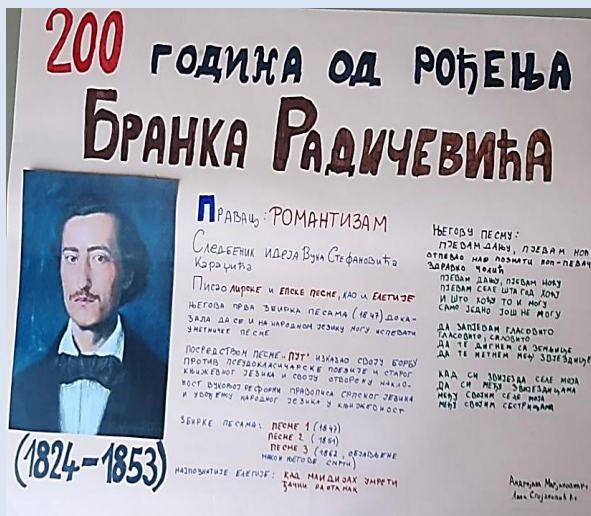 200 ГОДИНА ОД РОЂЕЊА
БРАНКА РАДИЧЕВИЋА
ПРАВАЦ: РОМАНТИЗАМ
СЛЕДБЕНИК ИДЕЈА ВУКА СТЕФАНОВИЋА
КАРАЏИЋА
ПИСАО ЛИРСКЕ И ЕПСКЕ ПЕСМЕ, КАО И ЕЛЕГИЈЕ
ЊЕГОВА ПРВА ЗБИРКА ПЕСАМА (1847) ДОКА-
ЗАЛА ДА СЕ И НА НАРОДНОМ ЈЕЗИКУ МОГУ ИСПЕВАТИ
УМЕТНИЧКЕ ПЕСМЕ
ПОСРЕДСТВОМ ПЕСМЕ „ПУТ" ИЗКАЗАО СВОЈУ БОРБУ
ПРОТИВ ПСЕУДОКЛАСИЧАРСКЕ ПОЕЗИЈЕ И СТАРОГ
КЊИЖЕВНОГ ЈЕЗИКА И СВОЈУ ОТВОРЕНУ НАКЛО-
НОСТ ВУКОВОЈ РЕФОРМИ ПРАВОПИСА СРПСКОГ ЈЕЗИКА
И УВОЂЕЊУ НАРОДНОГ ЈЕЗИКА У КЊИЖЕВНОСТ
ЗБИРКЕ ПЕСАМА: ПЕСМЕ 1 (1847)
ПЕСМЕ 2 (1851)
ПЕСМЕ 3 (1862, ОБЈАВЉЕНЕ
НАКОН ЊЕГОВЕ СМРТИ)
НАЈПОЗНАТИЈЕ ЕЛЕГИЈЕ: КАД МЛИДИЈАХ УМРЕТИ
ЂАЧКИ РАСТАНАК
(1824-1853)
ЊЕГОВУ ПЕСМУ:
ПЈЕВАМ ДАЊУ, ПЈЕВАМ НОЋ
ОТПЕВАО НАМ ПОЗНАТИ ПОП-ПЕВАЧ
ЗДРАВКО ЧОЛИЋ
ПЈЕВАМ ДАЊУ, ПЈЕВАМ НОЋУ
ПЈЕВАМ СЕЛЕ ШТА ГОД ХОЋУ
И ШТО ХОЋУ ТО И МОГУ
САМО ЈЕДНО ЈОШ НЕ МОГУ
ДА ЗАПЈЕВАМ ГЛАСОВИТО
ГЛАСОВИТО, СИЛОВИТО
ДА ТЕ ДИГНЕМ СА ЗЕМЉИЦЕ
ДА ТЕ МЕТНЕМ МЕЂ ЗВЈЕЗДИЦЕ
КАД СИ ЗВИЈЕЗДА СЕЛЕ МОЈА
ДА СИ МЕЂУ ЗВЈЕЗДИЦАМА
МЕЂУ СВОЈИМ СЕЛЕ МОЈА
МЕЂУ СВОЈИМ СЕСТРИЦАМА